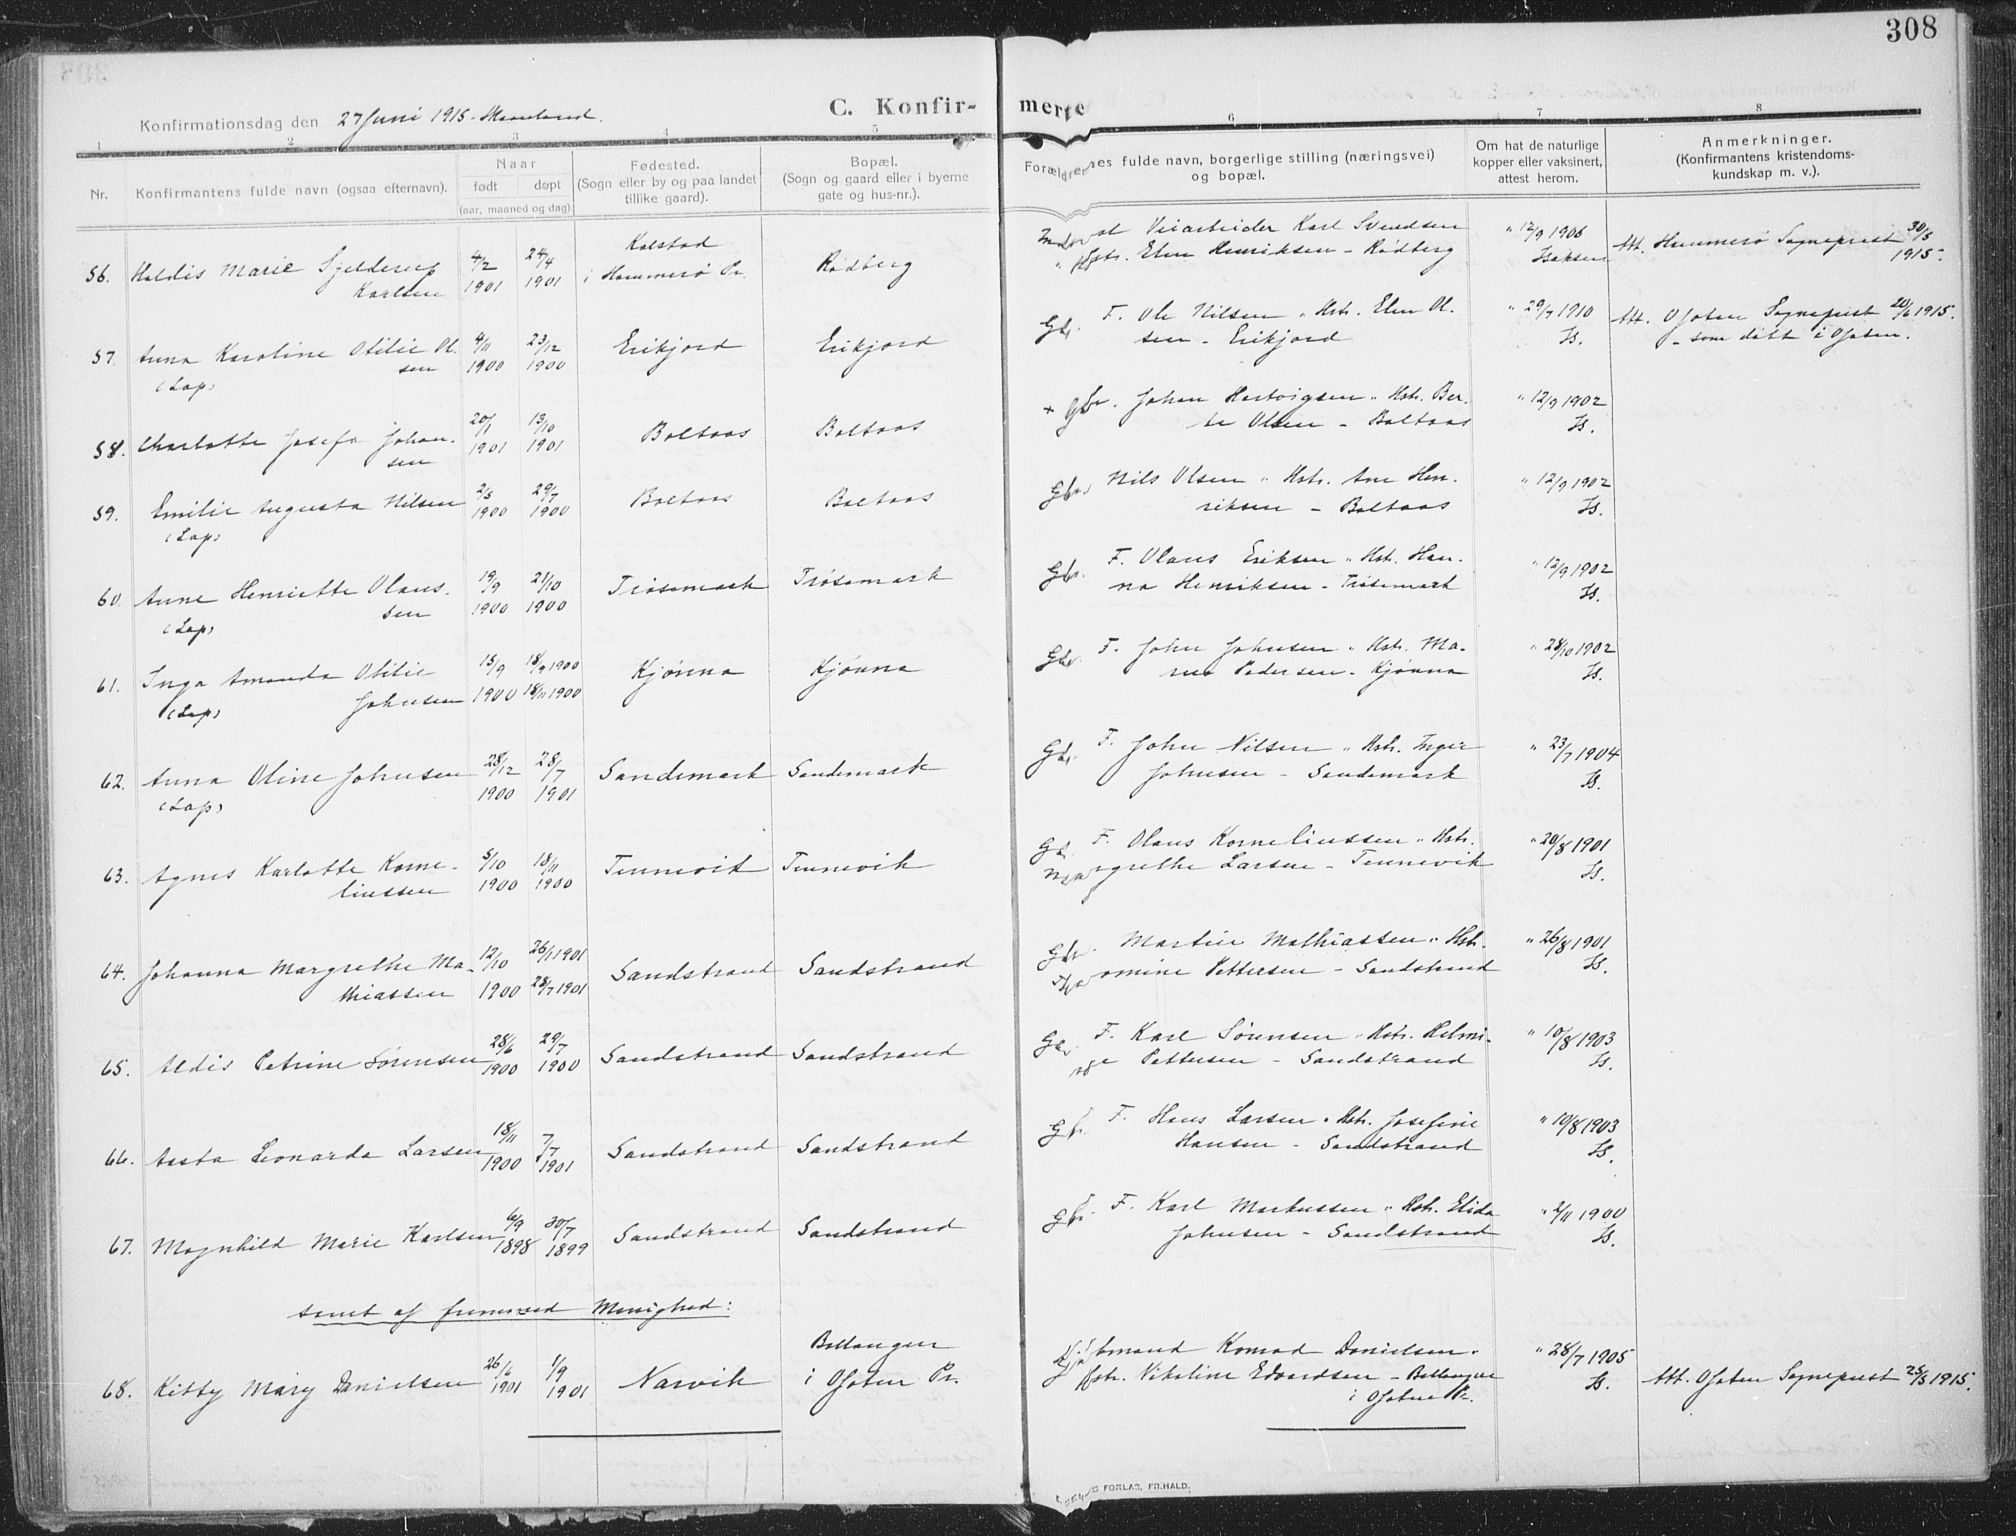 308
Konfirmationsdag den 27 Juni 1915 - Skaanland.
C. Konfir-
merte
1 2 3 4 5 6 7 8
Nr.
Konfirmantens fulde navn (ogsaa efternavn).
Naar
født døpt
(aar, maaned og dag).
Fødested.
(Sogn eller by og paa landet
tillike gaard).
Bopæl.
(Sogn og gaard eller i byerne
gate og hus-nr.).
Forældrenes fulde navn, borgerlige stilling (næringsvei)
og bopæl.
Om hat de naturlige
kopper eller vaksinert,
attest herom.
Anmerkninger.
(Konfirmantens kristendoms-
kundskap m. v.).
56. Haldis Marie Sjelderup
Karlsen
4/2 1901
24/4 1901
Kalstad
i Hammerø Pr.
Rødberg
Veiarbeider Karl Svendsen
Elen Henriksen - Rødberg
" 12/9 1906
Isaksen
Att. Hammerø Sogneprest 30/5
1915.
57. Anna Karoline Otilie Ol.
sen
(Lap)
4/11 1900
23/12 1900
Erikjord
Erikjord
Gbr. F. Ole Nilsen " Hstr. Elen Ol.
sen - Erikjord
" 29/7 1910
Is.
Att. Ofoten Sogneprest 20/6 1915.
- som døbt i Ofoten.
58. Charlotte Josefa Johan.
sen
20/1 1901
13/10 1901
Boltaas
Boltaas
+ Gbr. Johan Hartvigsen " Hstr. Ber.
te Olsen - Boltaas
" 12/9 1902
Is.
59. Emilie Augusta Nilsen
(Lap)
2/5 1900
29/7 1900
Boltaas
Boltaas
Gbr. Nils Olsen " Hstr. Ane Hen.
riksen - Boltaas
" 12/9 1902
Is.
60. Anne Henriette Olaus.
sen
(Lap)
19/9 1900
21/10 1900
Trøsemark
Trøsemark
Gbr. F. Olaus Eriksen " Hstr. Han.
na Henriksen - Trøsemark
" 12/9 1902
Is.
61. Inga Amanda Otilie
Johnsen
(Lap)
15/9 1900
18/9 1900
18/11 1900
Kjønna
Kjønna
Gbr. F. John Johnsen " Hstr. Ma.
Pedersen - Kjønna
" 28/10 1902
Is.
62. Anna Oline Johnsen
(Lap)
28/12 1900
28/7 1901
Sandemark
Sandemark
Gbr. F. John Nilsen " Hstr. Inger
Johnsen - Sandemark
" 23/7 1904
Is.
63. Agnes Karlotte Korne-
liussen
5/10 1900
18/11 1900
Tennevik
Tennevik
Gbr. F. Olaus Korneliussen " Hstr.
Margrethe Larsen - Tennevik
" 20/8 1901
Is.
64. Johanna Margrethe Ma-
thiassen
12/10 1900
26/1 1901
28/7 1901
Sandstrand
Sandstrand
Gbr. Martin Mathiassen " Hstr.
Pettersen - Sandstrand
" 26/8 1901
Is.
65. Aldis Petrine Sørensen
28/6 1900
29/7 1900
Sandstrand
Sandstrand
Gbr. F. Karl Sørensen " Hstr. Helmi-
Pettersen - Sandstrand
" 10/8 1903
Is.
66. Aasta Leonarda Larsen
18/11 1900
7/7 1901
Sandstrand
Sandstrand
Gbr. F. Hans Larsen " Hstr. Josefine
Hansen - Sandstrand
" 10/8 1903
Is.
67. Magnhild Marie Karlsen
6/9 1898
30/7 1899
Sandstrand
Sandstrand
Gbr. F. Karl Markussen " Hstr. Elida
Johnsen - Sandstrand
" 2/11 1900
Is.
samt af fremmed Menighed:
68. Kitty Mary Danielsen
26/6 1901
1/9 1901
Narvik
Ballangen
i Ofoten Pr.
Konrad Danielsen "
Nikoline Edvardsen - Ballangen
i Ofoten Pr.
" 28/7 1905
Is.
Att. Ofoten Sogneprest 25/5 1915.
FORLAG, FR.HALD.